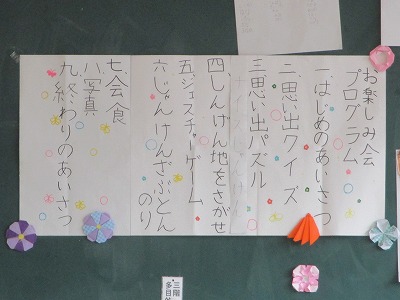 お楽しみ会
プログラム
一、はじめのあいさつ
二、思い出クイズ
三、思い出パズル
四、しんげん地をさがせ
五、ジェスチャーゲーム
六、じゃんけんざぶとん
のり
七、会食
八、写真
九、終わりのあいさつ
三階